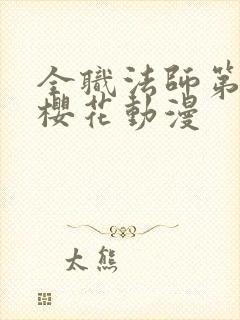 全職法師第
櫻花動漫
太熊